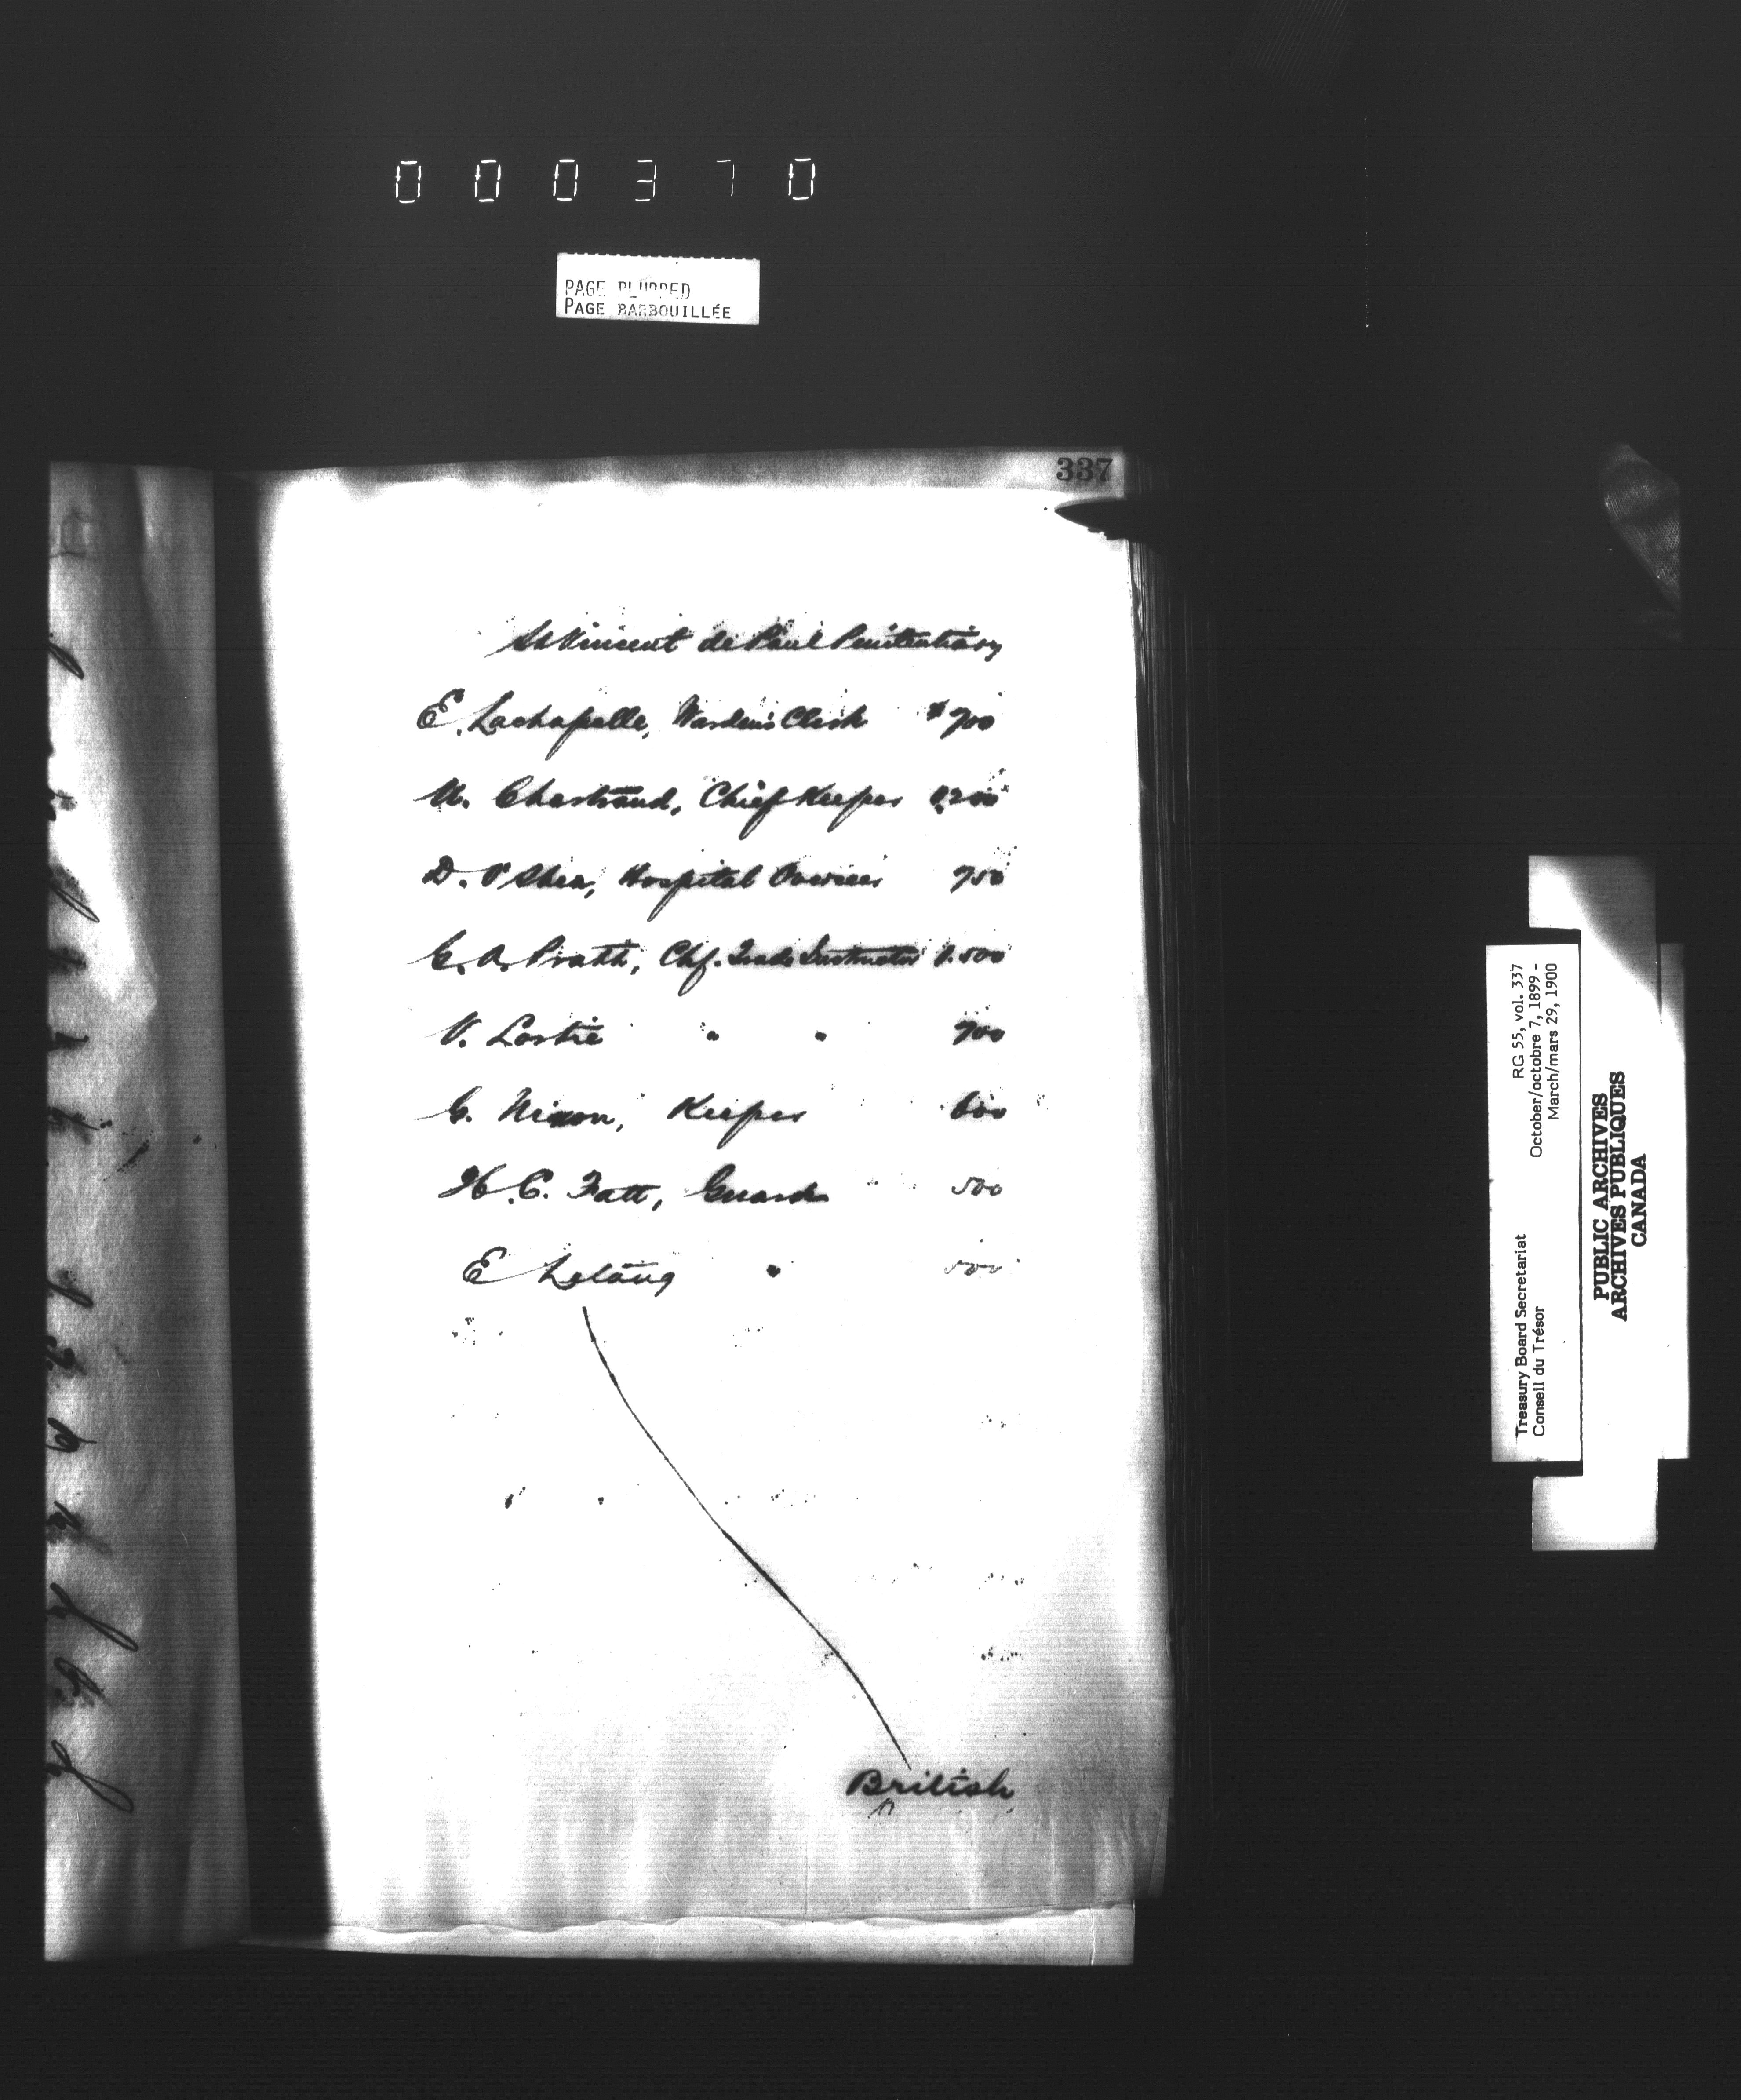 000370
PAGE BLURRED
PAGE BARBOUILLÉE
337
St Vincent de Paul Penitentiary
E. Lachapelle, Warden's Clerk $700
Chartrand, Chief Keeper 1,200
D. O'Shea, Hospital Overseer 700
G. A. Pratt, Chf. Trade Instructor 1.500
V. Lortie " " 700
G. Nixon, Keeper 600
H. C. Fatt, Guard 500
E " 500
British
Treasury Board Secretariat RG 55, vol. 337
Conseil du Trésor October/octobre 7, 1899 -
March/mars 29, 1900
PUBLIC ARCHIVES
ARCHIVES PUBLIQUES
CANADA